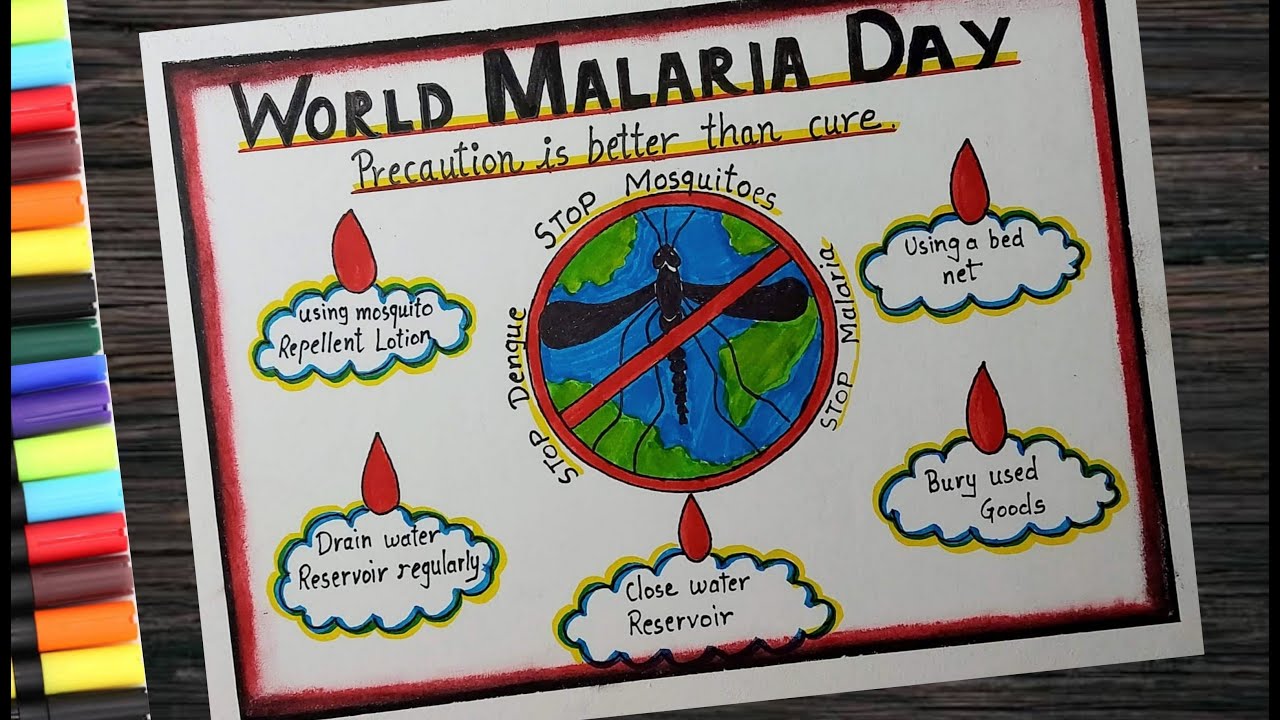 WORLD MALARIA DAY
Precaution is better than cure.
STOP Mosquitoes
STOP Dengue
STOP Malaria
using mosquito
Repellent Lotion
Using a bed
net
Drain water
Reservoir regularly
Close water
Reservoir
Bury used
Goods